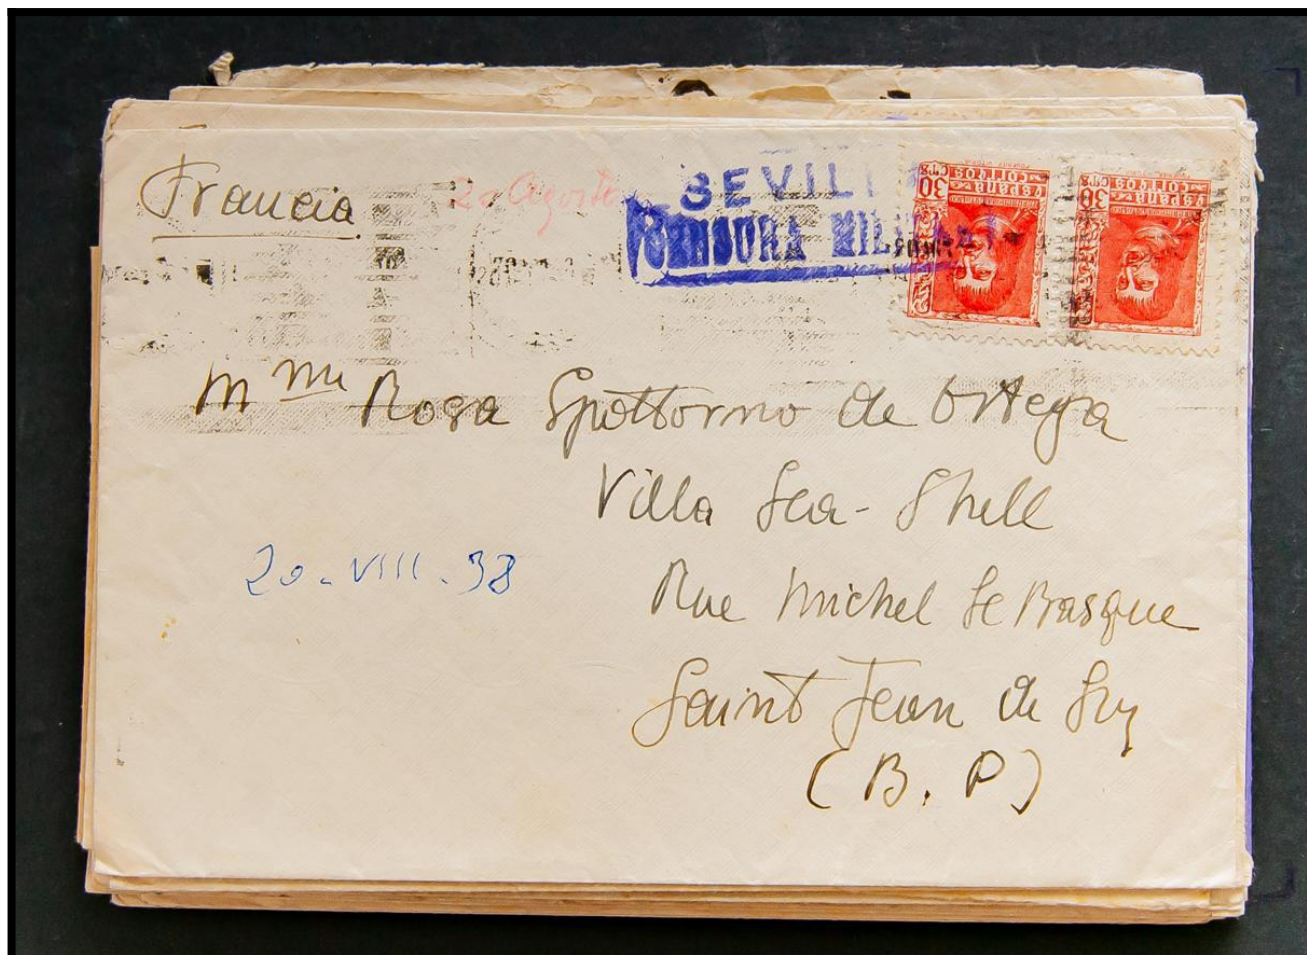 Francia
20 Agosto
SEVILLA
CENSURA MILITAR
30 CTS
ESPAÑA
CORREOS
30 CTS
ESPAÑA
CORREOS
Mme Rosa Spottorno de Ortega
Villa Sea-Shell
20-VIII-38
Rue Michel Le Basque
Saint Jean de Luz
(B. P)